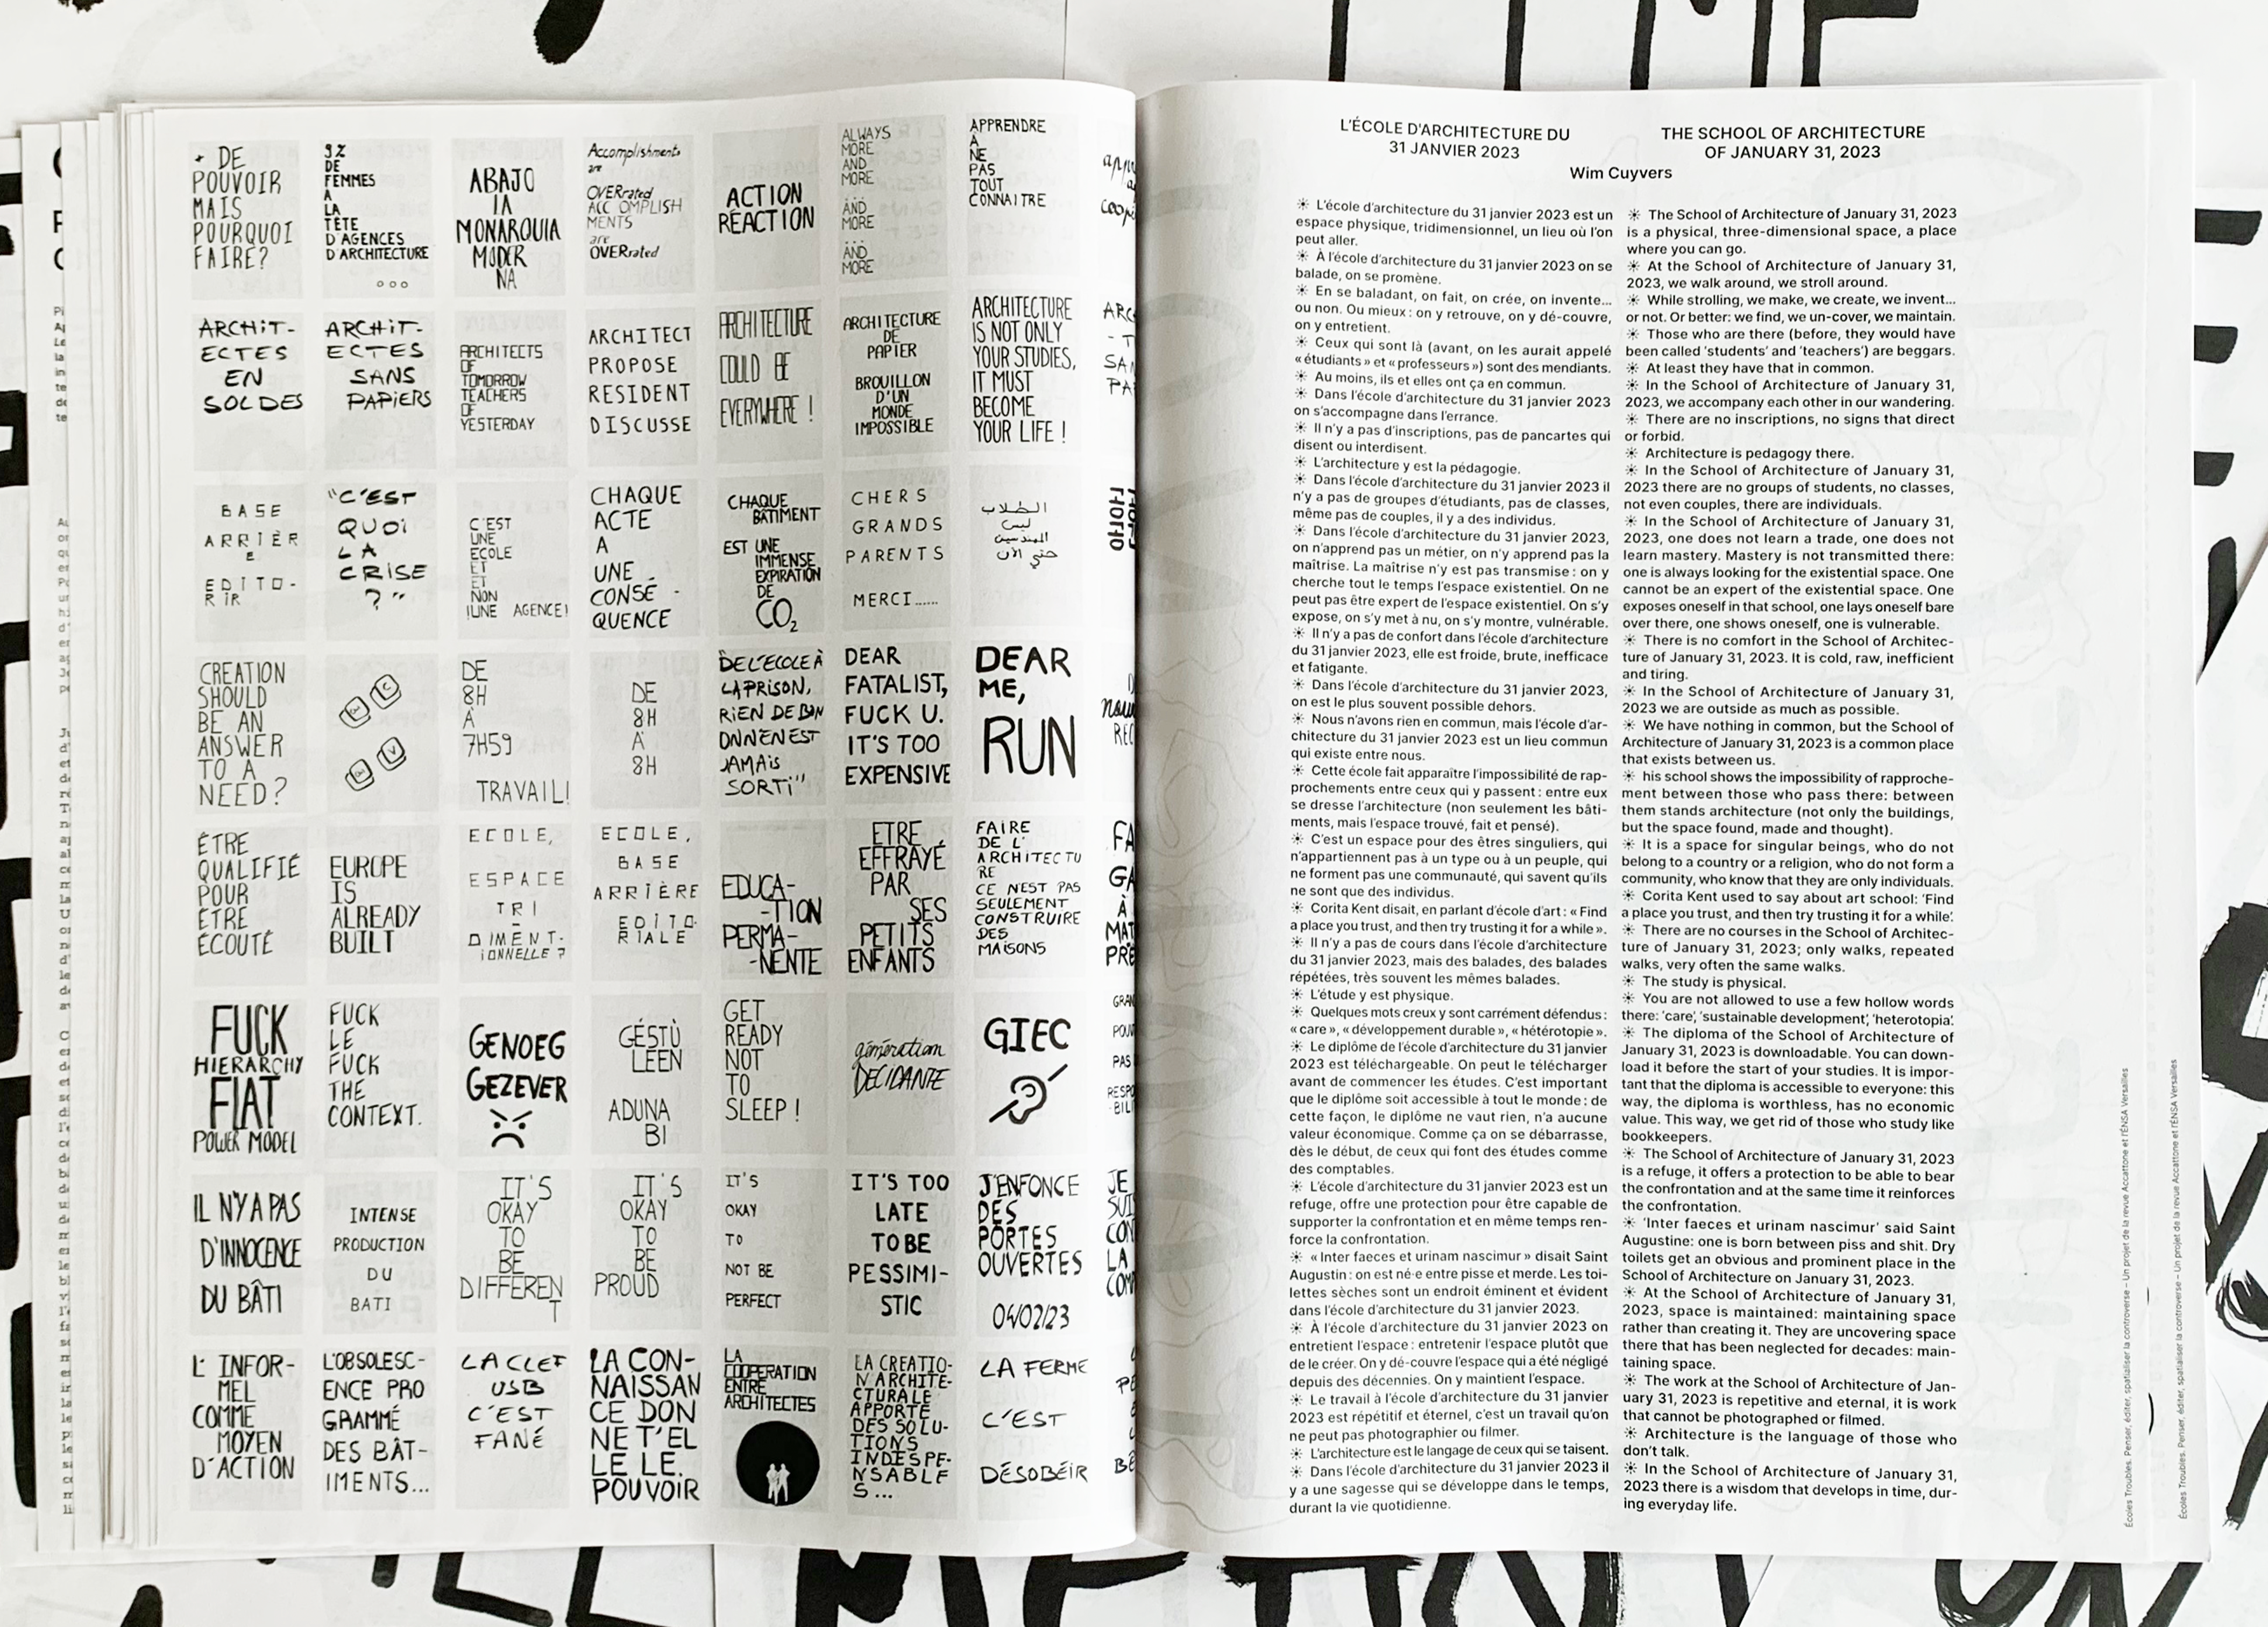 + DE
POUVOIR
MAIS
POURQUOI
FAIRE?
9%
DE
FEMMES
À
LA
TÊTE
D'AGENCES
D'ARCHITECTURE
ABAJO
LA
MONARQUIA
MODER
NA
Accomplishments
are
OVERrated
ACCOMPLISH
MENTS
are
OVERrated
ACTION
RÉACTION
ALWAYS
MORE
AND
MORE
AND
MORE
AND
MORE
APPRENDRE
À
NE
PAS
TOUT
CONNAITRE
ARCHIT-
ECTES
EN
SOLDES
ARCHIT-
ECTES
SANS
PAPIERS
ARCHITECTS
OF
TOMORROW
TEACHERS
OF
YESTERDAY
ARCHITECT
PROPOSE
RESIDENT
DISCUSSE
ARCHITECTURE
COULD BE
EVERYWHERE !
ARCHITECTURE
DE
PAPIER
BROUILLON
D'UN
MONDE
IMPOSSIBLE
ARCHITECTURE
IS NOT ONLY
YOUR STUDIES,
IT MUST
BECOME
YOUR LIFE !
BASE
ARRIÈR
E
EDITO-
RIR
"C'EST
QUOI
LA
CRISE
?"
C'EST
UNE
ECOLE
ET
ET
NON
!UNE AGENCE!
CHAQUE
ACTE
A
UNE
CONSÉ -
QUENCE
CHAQUE
BÂTIMENT
EST UNE
IMMENSE
EXPIRATION
DE
CO2
CHERS
GRANDS
PARENTS
MERCI......
الطلاب
ليس
المهندسين
حتي الآن
CREATION
SHOULD
BE AN
ANSWER
TO A
NEED?
C
V
DE
8H
À
7H59
TRAVAIL!
DE
8H
À
8H
"DE L'ECOLE À
LA PRISON,
RIEN DE BON
ON N'EN EST
JAMAIS
SORTI"
DEAR
FATALIST,
FUCK U.
IT'S TOO
EXPENSIVE
DEAR
ME,
RUN
ÊTRE
QUALIFIÉ
POUR
ÊTRE
ÉCOUTÉ
EUROPE
IS
ALREADY
BUILT
ECOLE,
ESPACE
TRI
-
DIMENT-
IONNELLE ?
ECOLE,
BASE
ARRIÈRE
EDITO-
RIALE
EDUCA-
-TION
PERMA-
-NENTE
ETRE
EFFRAYÉ
PAR
SES
PETITS
ENFANTS
FAIRE
DE L'
ARCHITECTU
RE
CE N'EST PAS
SEULEMENT
CONSTRUIRE
DES
MAISONS
FUCK
HIERARCHY
FIAT
POWER MODEL
FUCK
LE
FUCK
THE
CONTEXT.
GENOEG
GEZEVER
GÉSTÙ
LEEN
ADUNA
BI
GET
READY
NOT
TO
SLEEP !
génération
DÉCIDANTE
GIEC
IL N'Y A PAS
D'INNOCENCE
DU BÂTI
INTENSE
PRODUCTION
DU
BATI
IT'S
OKAY
TO
BE
DIFFEREN
T
IT'S
OKAY
TO
BE
PROUD
IT'S
OKAY
TO
NOT BE
PERFECT
IT'S TOO
LATE
TO BE
PESSIMI-
STIC
J'ENFONCE
DES
PORTES
OUVERTES
04/02/23
L'INFOR-
MEL
COMME
MOYEN
D'ACTION
L'OBSOLESC-
ENCE PRO
GRAMMÉ
DES BÂT-
IMENTS...
LA CLEF
USB
C'EST
FANÉ
LA CON-
NAISSAN
CE DON
NE T'EL
LE LE
POUVOIR
LA
COOPERATION
ENTRE
ARCHITECTES
LA CREATIO-
N ARCHITE-
CTURALE
APPORTE
DES SOLU-
TIONS
INDESPE-
NSABLE
S...
LA FERME
C'EST
DÉSOBÉIR
L'ÉCOLE D'ARCHITECTURE DU
31 JANVIER 2023
THE SCHOOL OF ARCHITECTURE
OF JANUARY 31, 2023
Wim Cuyvers
☀ L'école d'architecture du 31 janvier 2023 est un
espace physique, tridimensionnel, un lieu où l'on
peut aller.
☀ À l'école d'architecture du 31 janvier 2023 on se
balade, on se promène.
☀ En se baladant, on fait, on crée, on invente...
ou non. Ou mieux : on y retrouve, on y dé-couvre,
on y entretient.
☀ Ceux qui sont là (avant, on les aurait appelé
« étudiants » et « professeurs ») sont des mendiants.
☀ Au moins, ils et elles ont ça en commun.
☀ Dans l'école d'architecture du 31 janvier 2023
on s'accompagne dans l'errance.
☀ Il n'y a pas d'inscriptions, pas de pancartes qui
disent ou interdisent.
☀ L'architecture y est la pédagogie.
☀ Dans l'école d'architecture du 31 janvier 2023 il
n'y a pas de groupes d'étudiants, pas de classes,
même pas de couples, il y a des individus.
☀ Dans l'école d'architecture du 31 janvier 2023,
on n'apprend pas un métier, on n'y apprend pas la
maîtrise. La maîtrise n'y est pas transmise : on y
cherche tout le temps l'espace existentiel. On ne
peut pas être expert de l'espace existentiel. On s'y
expose, on s'y met à nu, on s'y montre, vulnérable.
☀ Il n'y a pas de confort dans l'école d'architecture
du 31 janvier 2023, elle est froide, brute, inefficace
et fatigante.
☀ Dans l'école d'architecture du 31 janvier 2023,
on est le plus souvent possible dehors.
☀ Nous n'avons rien en commun, mais l'école d'ar-
chitecture du 31 janvier 2023 est un lieu commun
qui existe entre nous.
☀ Cette école fait apparaître l'impossibilité de rap-
prochements entre ceux qui y passent : entre eux
se dresse l'architecture (non seulement les bâti-
ments, mais l'espace trouvé, fait et pensé).
☀ C'est un espace pour des êtres singuliers, qui
n'appartiennent pas à un type ou à un peuple, qui
ne forment pas une communauté, qui savent qu'ils
ne sont que des individus.
☀ Corita Kent disait, en parlant d'école d'art : « Find
a place you trust, and then try trusting it for a while ».
☀ Il n'y a pas de cours dans l'école d'architecture
du 31 janvier 2023, mais des balades, des balades
répétées, très souvent les mêmes balades.
☀ L'étude y est physique.
☀ Quelques mots creux y sont carrément défendus :
« care », « développement durable », « hétérotopie ».
☀ Le diplôme de l'école d'architecture du 31 janvier
2023 est téléchargeable. On peut le télécharger
avant de commencer les études. C'est important
que le diplôme soit accessible à tout le monde : de
cette façon, le diplôme ne vaut rien, n'a aucune
valeur économique. Comme ça on se débarrasse,
dès le début, de ceux qui font des études comme
des comptables.
☀ L'école d'architecture du 31 janvier 2023 est un
refuge, offre une protection pour être capable de
supporter la confrontation et en même temps ren-
force la confrontation.
☀ « Inter faeces et urinam nascimur » disait Saint
Augustin : on est né·e entre pisse et merde. Les toi-
lettes sèches sont un endroit éminent et évident
dans l'école d'architecture du 31 janvier 2023.
☀ À l'école d'architecture du 31 janvier 2023 on
entretient l'espace : entretenir l'espace plutôt que
de le créer. On y dé-couvre l'espace qui a été négligé
depuis des décennies. On y maintient l'espace.
☀ Le travail à l'école d'architecture du 31 janvier
2023 est répétitif et éternel, c'est un travail qu'on
ne peut pas photographier ou filmer.
☀ L'architecture est le langage de ceux qui se taisent.
☀ Dans l'école d'architecture du 31 janvier 2023 il
y a une sagesse qui se développe dans le temps,
durant la vie quotidienne.
☀ The School of Architecture of January 31, 2023
is a physical, three-dimensional space, a place
where you can go.
☀ At the School of Architecture of January 31,
2023, we walk around, we stroll around.
☀ While strolling, we make, we create, we invent...
or not. Or better: we find, we un-cover, we maintain.
☀ Those who are there (before, they would have
been called 'students' and 'teachers') are beggars.
☀ At least they have that in common.
☀ In the School of Architecture of January 31,
2023, we accompany each other in our wandering.
☀ There are no inscriptions, no signs that direct
or forbid.
☀ Architecture is pedagogy there.
☀ In the School of Architecture of January 31,
2023 there are no groups of students, no classes,
not even couples, there are individuals.
☀ In the School of Architecture of January 31,
2023, one does not learn a trade, one does not
learn mastery. Mastery is not transmitted there:
one is always looking for the existential space. One
cannot be an expert of the existential space. One
exposes oneself in that school, one lays oneself bare
over there, one shows oneself, one is vulnerable.
☀ There is no comfort in the School of Architec-
ture of January 31, 2023. It is cold, raw, inefficient
and tiring.
☀ In the School of Architecture of January 31,
2023 we are outside as much as possible.
☀ We have nothing in common, but the School of
Architecture of January 31, 2023 is a common place
that exists between us.
☀ his school shows the impossibility of rapproche-
ment between those who pass there: between
them stands architecture (not only the buildings,
but the space found, made and thought).
☀ It is a space for singular beings, who do not
belong to a country or a religion, who do not form a
community, who know that they are only individuals.
☀ Corita Kent used to say about art school: 'Find
a place you trust, and then try trusting it for a while'.
☀ There are no courses in the School of Architec-
ture of January 31, 2023; only walks, repeated
walks, very often the same walks.
☀ The study is physical.
☀ You are not allowed to use a few hollow words
there: 'care', 'sustainable development', 'heterotopia'.
☀ The diploma of the School of Architecture of
January 31, 2023 is downloadable. You can down-
load it before the start of your studies. It is impor-
tant that the diploma is accessible to everyone: this
way, the diploma is worthless, has no economic
value. This way, we get rid of those who study like
bookkeepers.
☀ The School of Architecture of January 31, 2023
is a refuge, it offers a protection to be able to bear
the confrontation and at the same time it reinforces
the confrontation.
☀ 'Inter faeces et urinam nascimur' said Saint
Augustine: one is born between piss and shit. Dry
toilets get an obvious and prominent place in the
School of Architecture on January 31, 2023.
☀ At the School of Architecture of January 31,
2023, space is maintained: maintaining space
rather than creating it. They are uncovering space
there that has been neglected for decades: main-
taining space.
☀ The work at the School of Architecture of Jan-
uary 31, 2023 is repetitive and eternal, it is work
that cannot be photographed or filmed.
☀ Architecture is the language of those who
don't talk.
☀ In the School of Architecture of January 31,
2023 there is a wisdom that develops in time, dur-
ing everyday life.
Écoles Troubles. Penser, éditer, spatialiser la controverse – Un projet de la revue Accattone et l'ÉNSA Versailles
Écoles Troubles. Penser, éditer, spatialiser la controverse – Un projet de la revue Accattone et l'ÉNSA Versailles